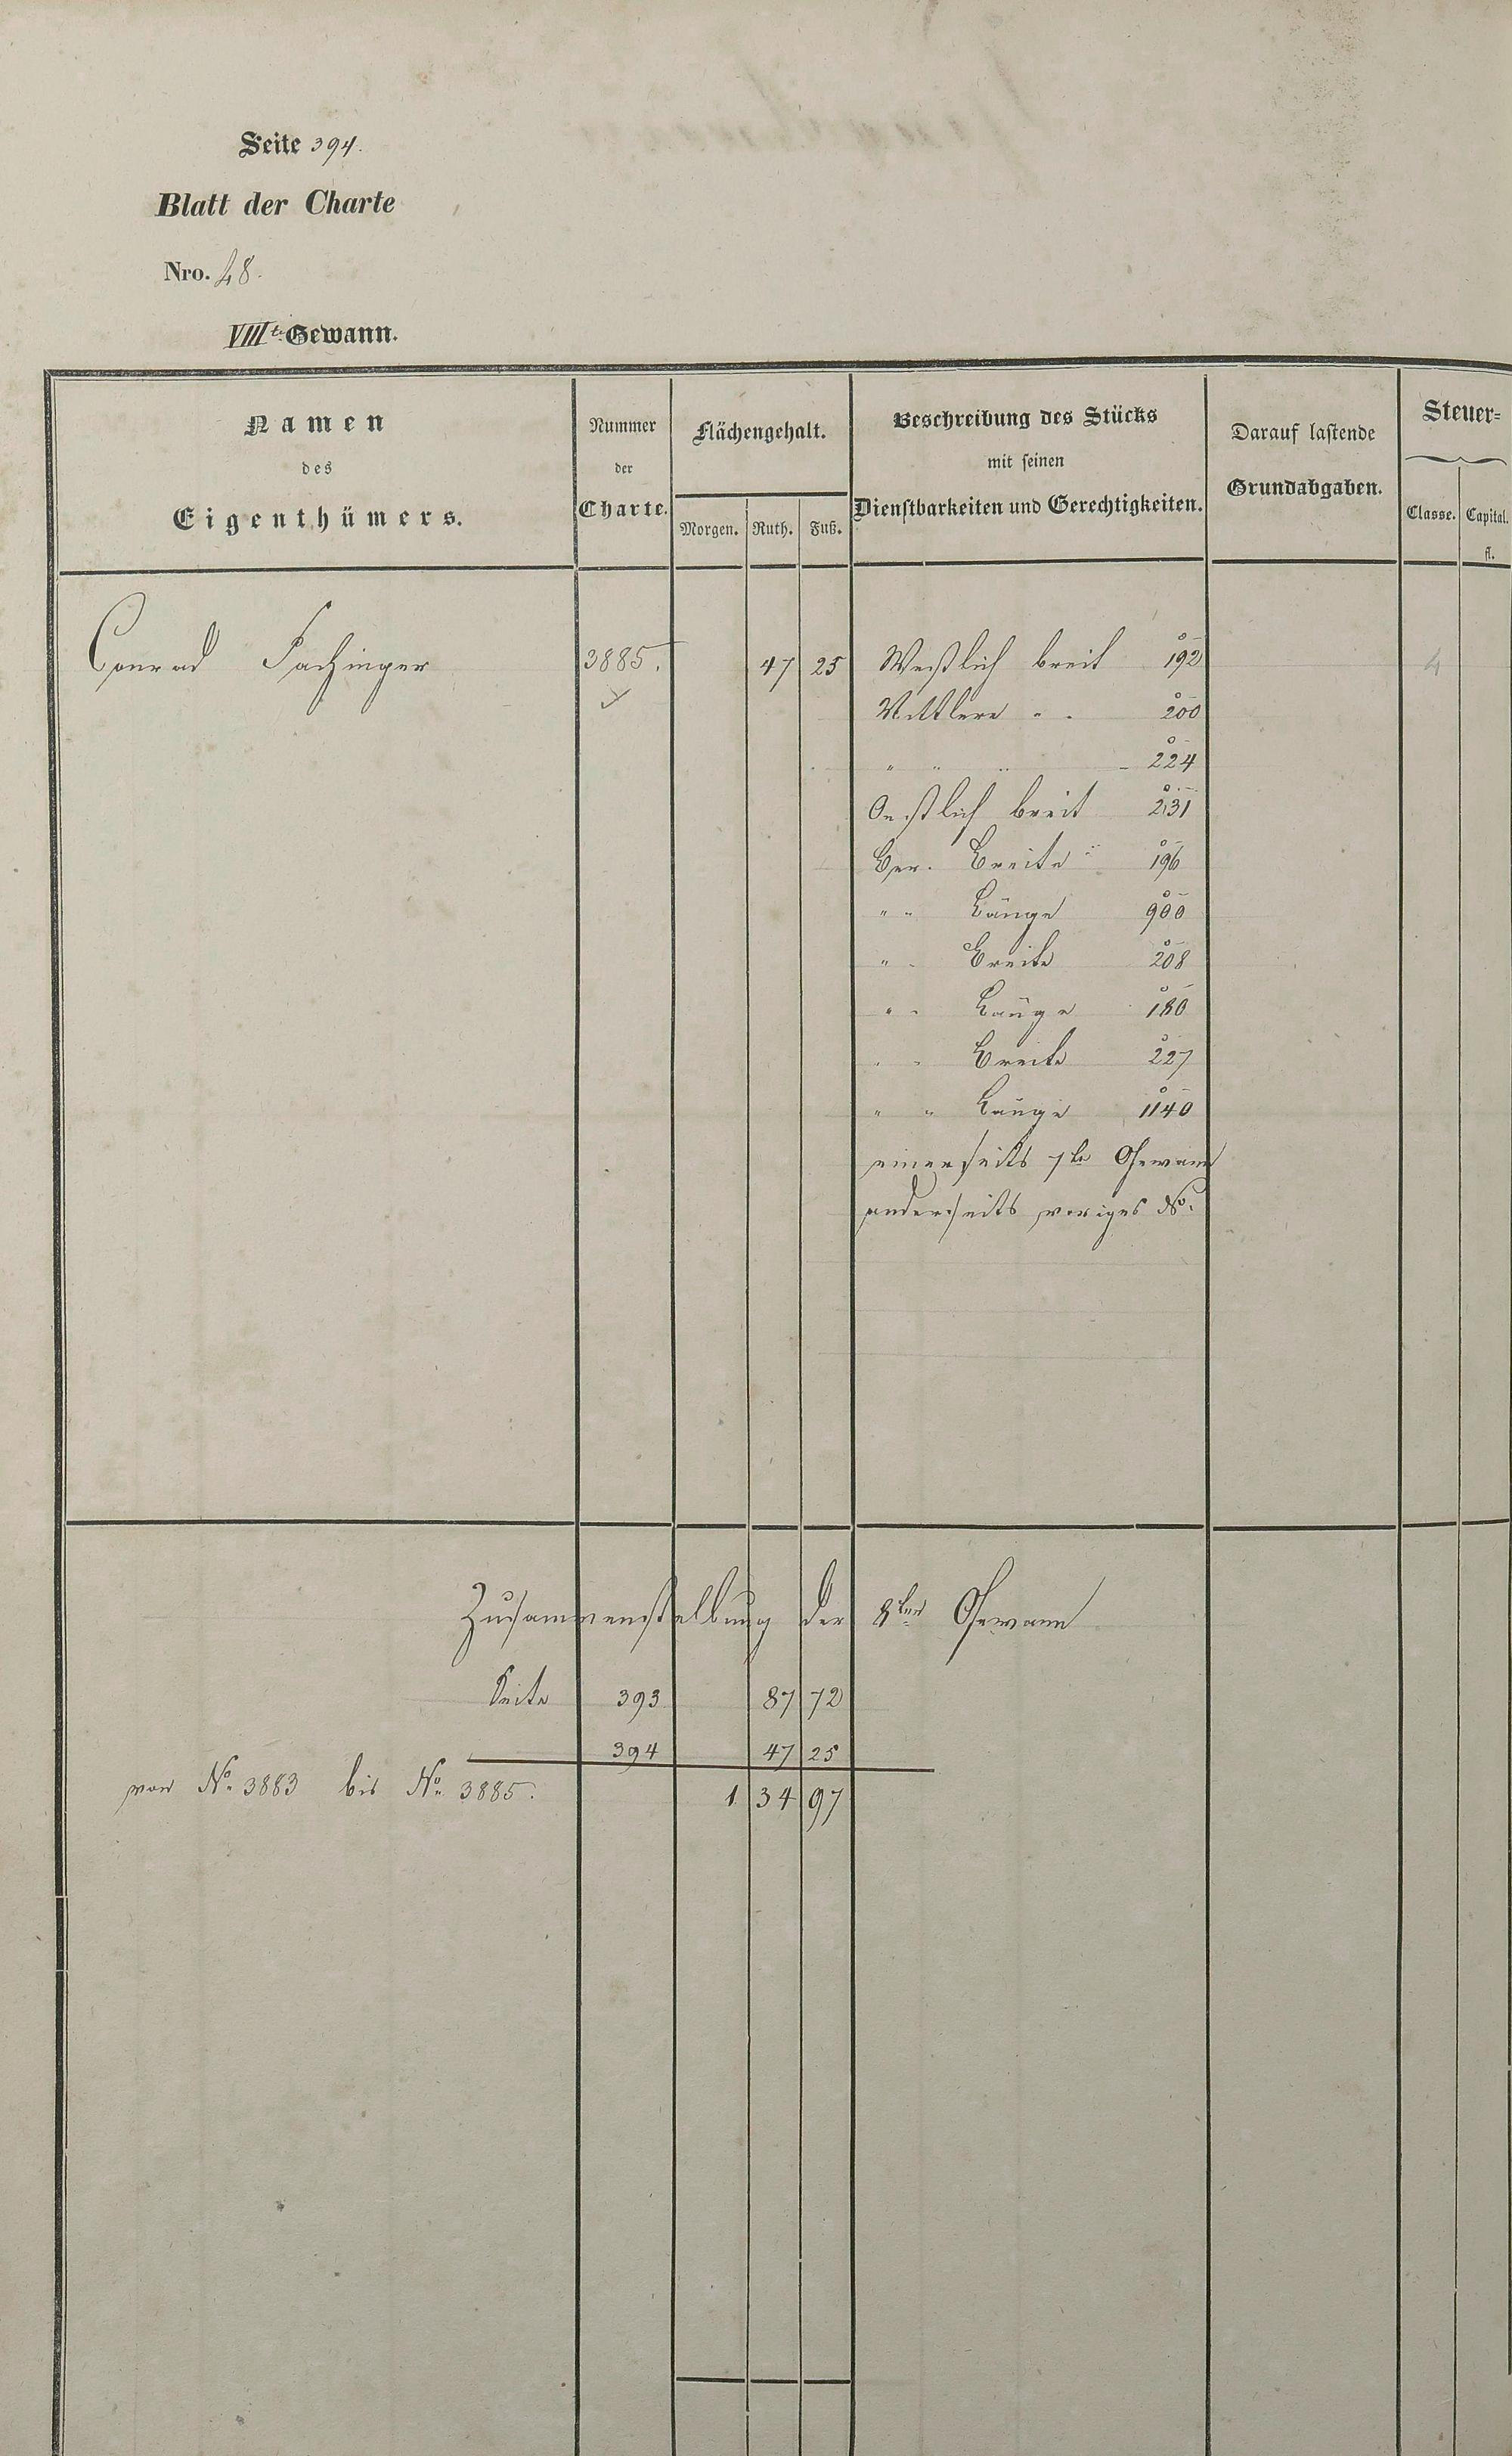 Seite 394.
Blatt der Charte
Nro. 48.
VIIIte Gewann.
Namen des Eigenthümers.
Nummer der Charte.
Flächengehalt.
Morgen. Ruth. Fuß.
Beschreibung des Stücks
mit seinen
Dienstbarkeiten und Gerechtigkeiten.
Darauf lastende
Grundabgaben.
Steuer=
Classe. Capital.
fl.
Conrad Fachinger 3885. 47 25 Westlich breit 192 4
Mittlere " " 200
" " " 224
Oestlich breit 231
Ber. Breite 196
" " Länge 900
" " Breite 208
" " Länge 180
" " Breite 227
" " Länge 1140
einerseits 7te Gewann
anderseits voriges No.
Zusammenstellung der 8ten Gewann
Seite 393 87 72
394 47 25
von No. 3883 bis No. 3885. 1 34 97